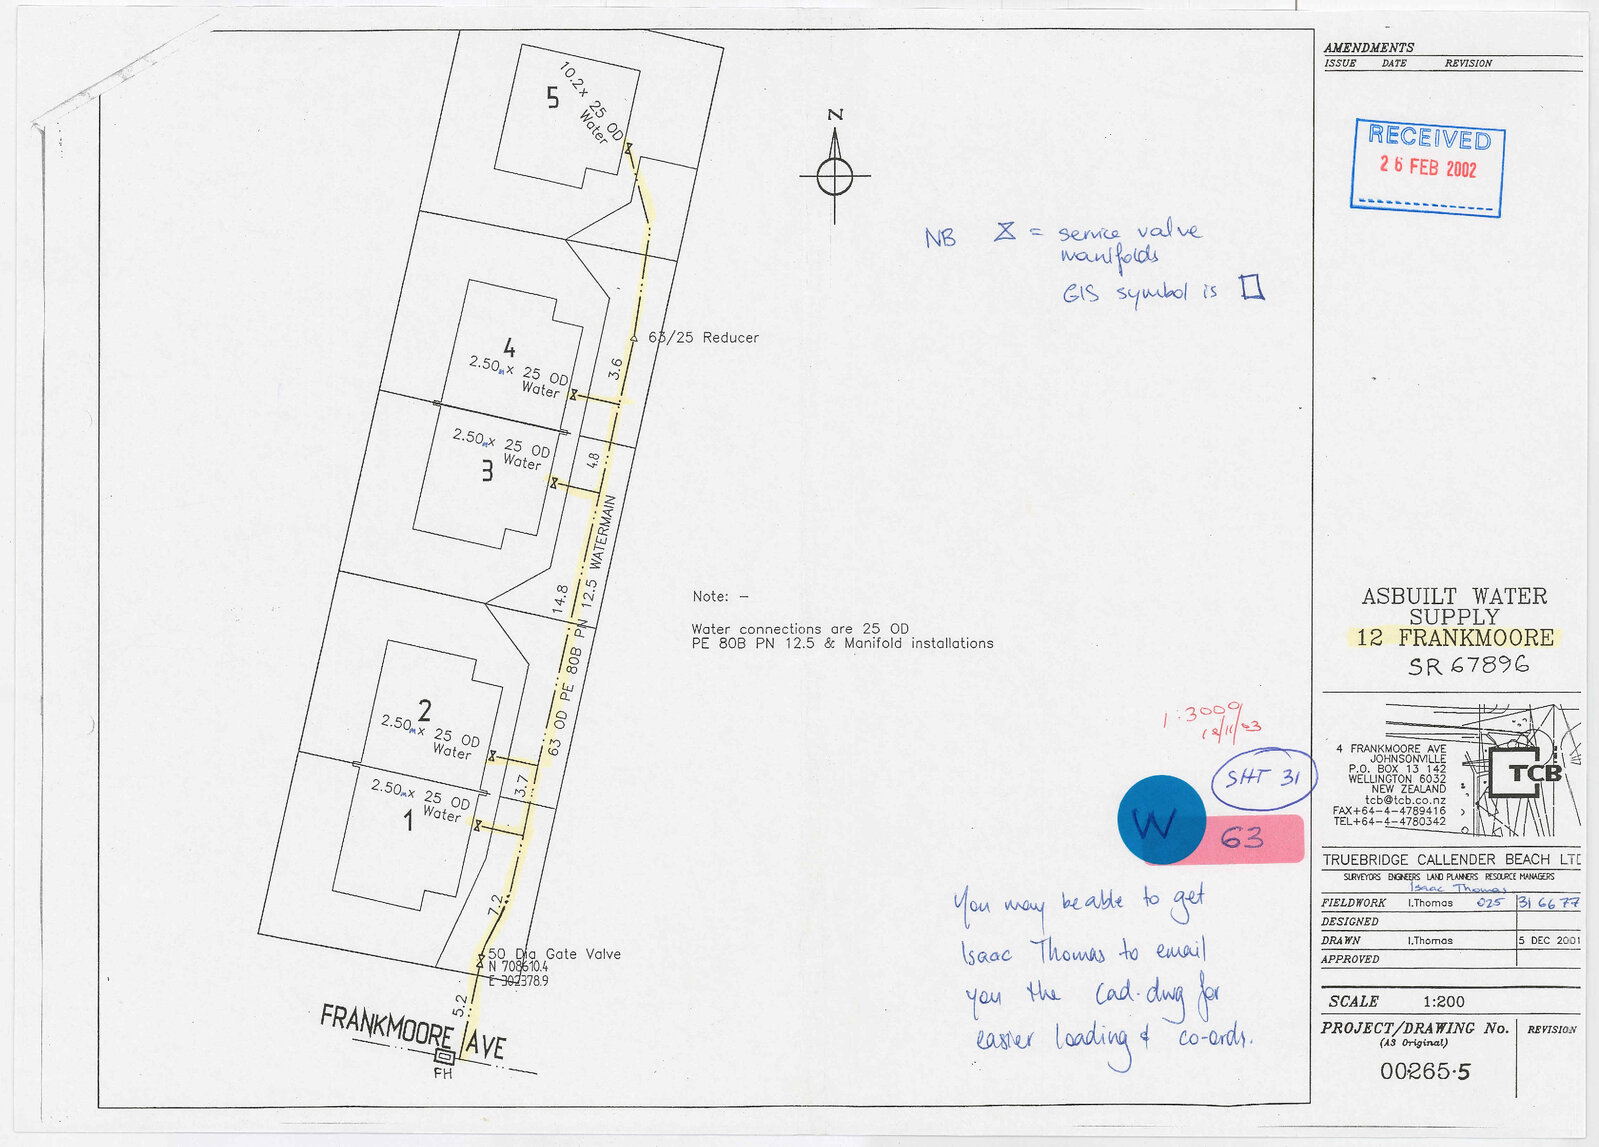 AMENDMENTS
ISSUE DATE REVISION
RECEIVED
26 FEB 2002
N
5
10.2 x 25 OD
Water
NB = service valve
manifolds
GIS symbol is
63/25 Reducer
4
2.50m x 25 OD
Water
3.6
2.50m x 25 OD
Water
3
4.8
14.8
63 OD PE 80B PN 12.5 WATERMAIN
Note: -
Water connections are 25 OD
PE 80B PN 12.5 & Manifold installations
2
2.50m x 25 OD
Water
3.7
2.50m x 25 OD
Water
1
7.2
50 Dia Gate Valve
N 708610.4
E 302378.9
5.2
FRANKMOORE AVE
FH
1:3000
SHT 31
W
63
You may be able to get
Isaac Thomas to email
you the cad.dwg for
easier loading & co-ords.
ASBUILT WATER
SUPPLY
12 FRANKMOORE
SR 67896
4 FRANKMOORE AVE
JOHNSONVILLE
P.O. BOX 13 142
WELLINGTON 6032
NEW ZEALAND
tcb@tcb.co.nz
FAX+64-4-4789416
TEL+64-4-4780342
TCB
TRUEBRIDGE CALLENDER BEACH LTD
SURVEYORS ENGINEERS LAND PLANNERS RESOURCE MANAGERS
Isaac Thomas
FIELDWORK I.Thomas 025 31 66 77
DESIGNED
DRAWN I.Thomas 5 DEC 2001
APPROVED
SCALE 1:200
PROJECT/DRAWING No. REVISION
(A3 Original)
00265-5